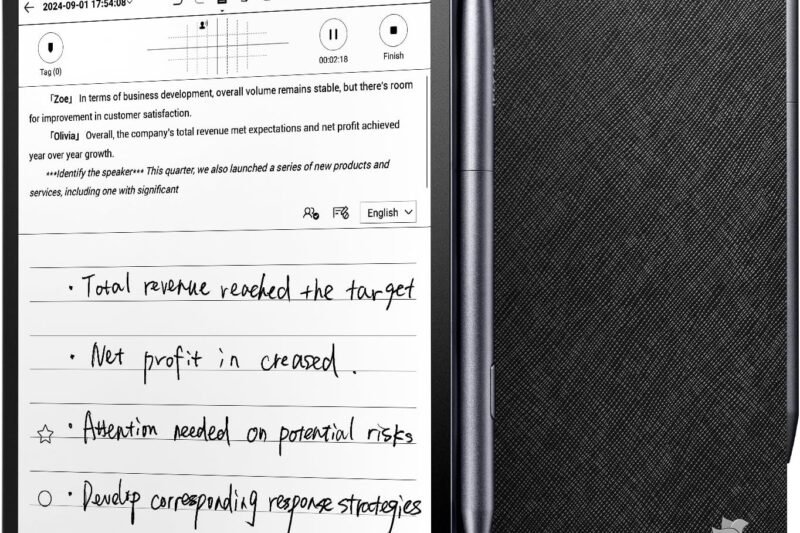 2024-09-01 17:54:08
Tag (0)
00:02:18
Finish
「Zoe」 In terms of business development, overall volume remains stable, but there's room
for improvement in customer satisfaction.
「Olivia」 Overall, the company's total revenue met expectations and net profit achieved
year over year growth.
***Identify the speaker*** This quarter, we also launched a series of new products and
services, including one with significant
English
• Total revenue reached the target
• Net profit in creased.
• Attention needed on potential risks
• Develop corresponding response strategies